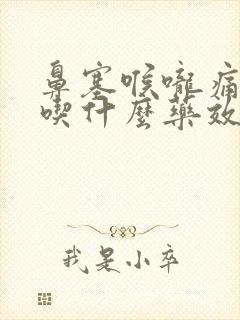 鼻塞喉嚨痛
喫什麼藥效
我是小卒